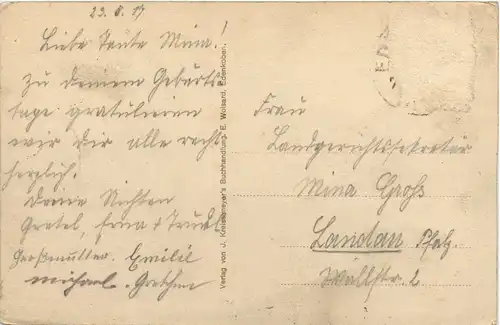 23. 8. 17
Liebe Tante Mina.
Zu deinem Geburts
tage gratulieren
wir dir alle recht
herzlich.
Deine Nichten
Gretel, Erna & Trudl
Großmutter. Emilie
Michael. Gretchen
Verlag von J. Buchhandlung E. Edenkoben.
Frau
Landgerichtssekretär
Mina Groß
Landau Pfalz.
Wallstr. 2